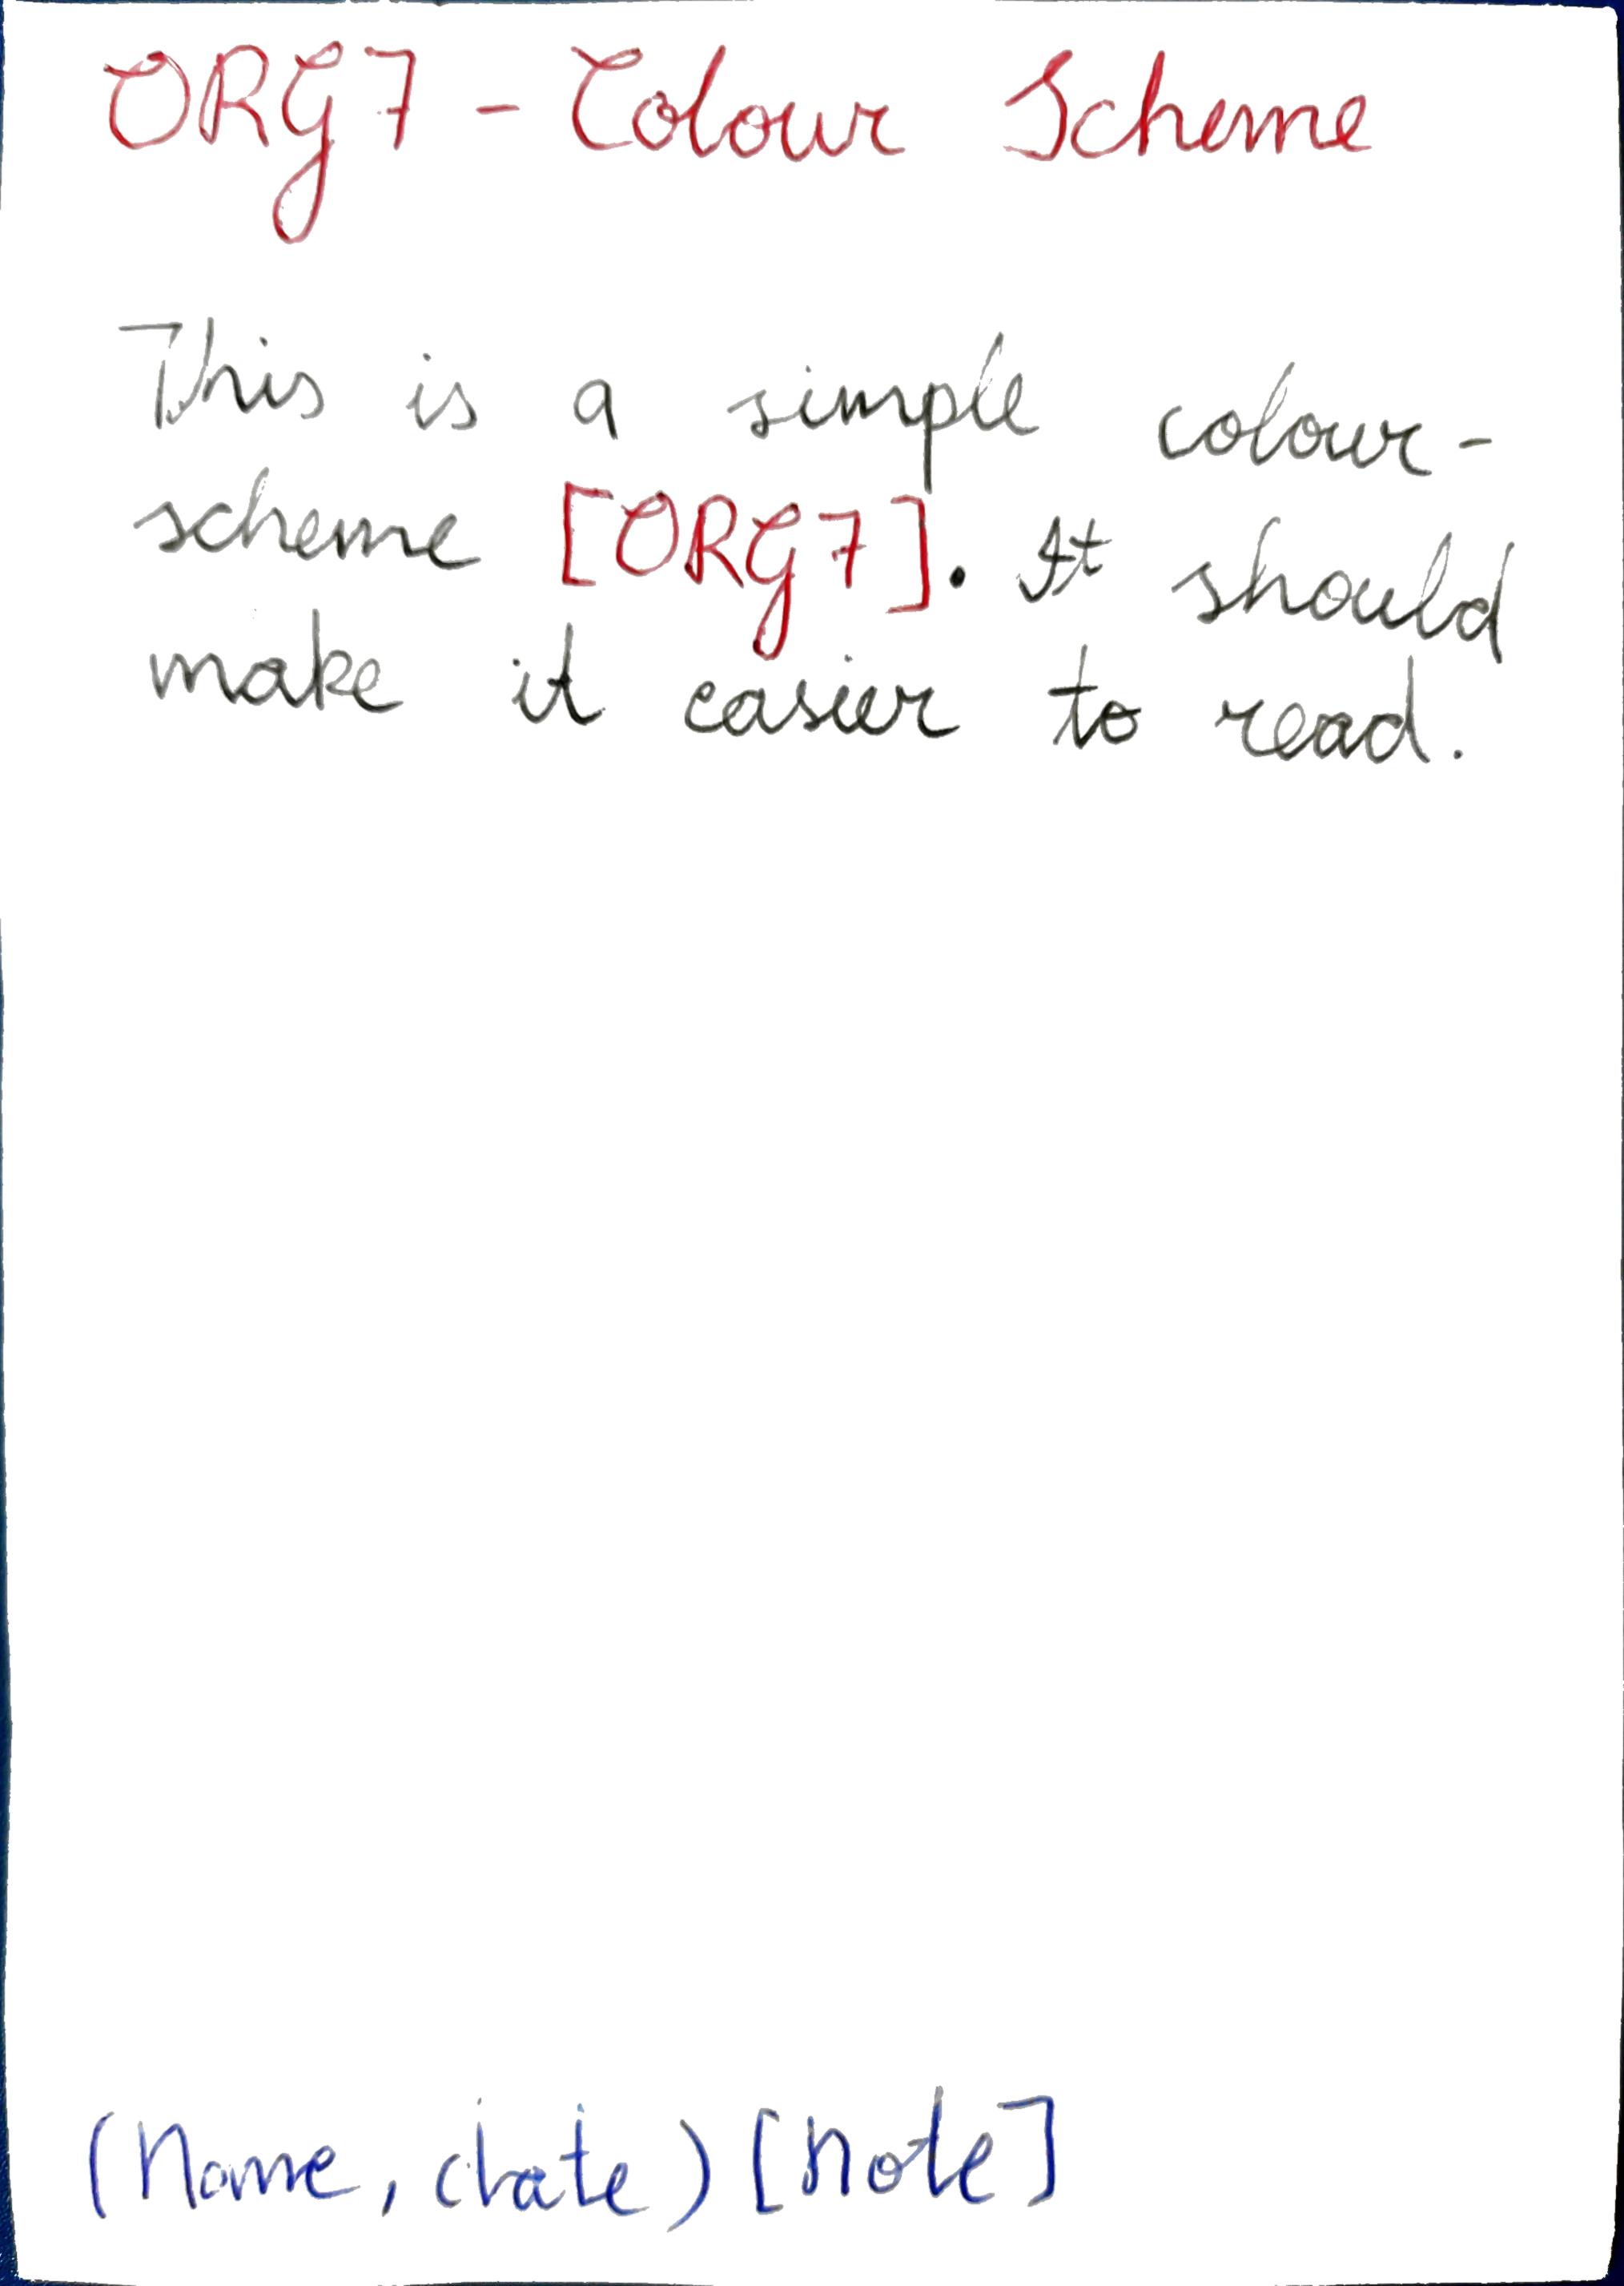 ORG7 - Colour Scheme
This is a simple colour-
scheme [ORG7]. It should
make it easier to read.
(Name, date) [Note]